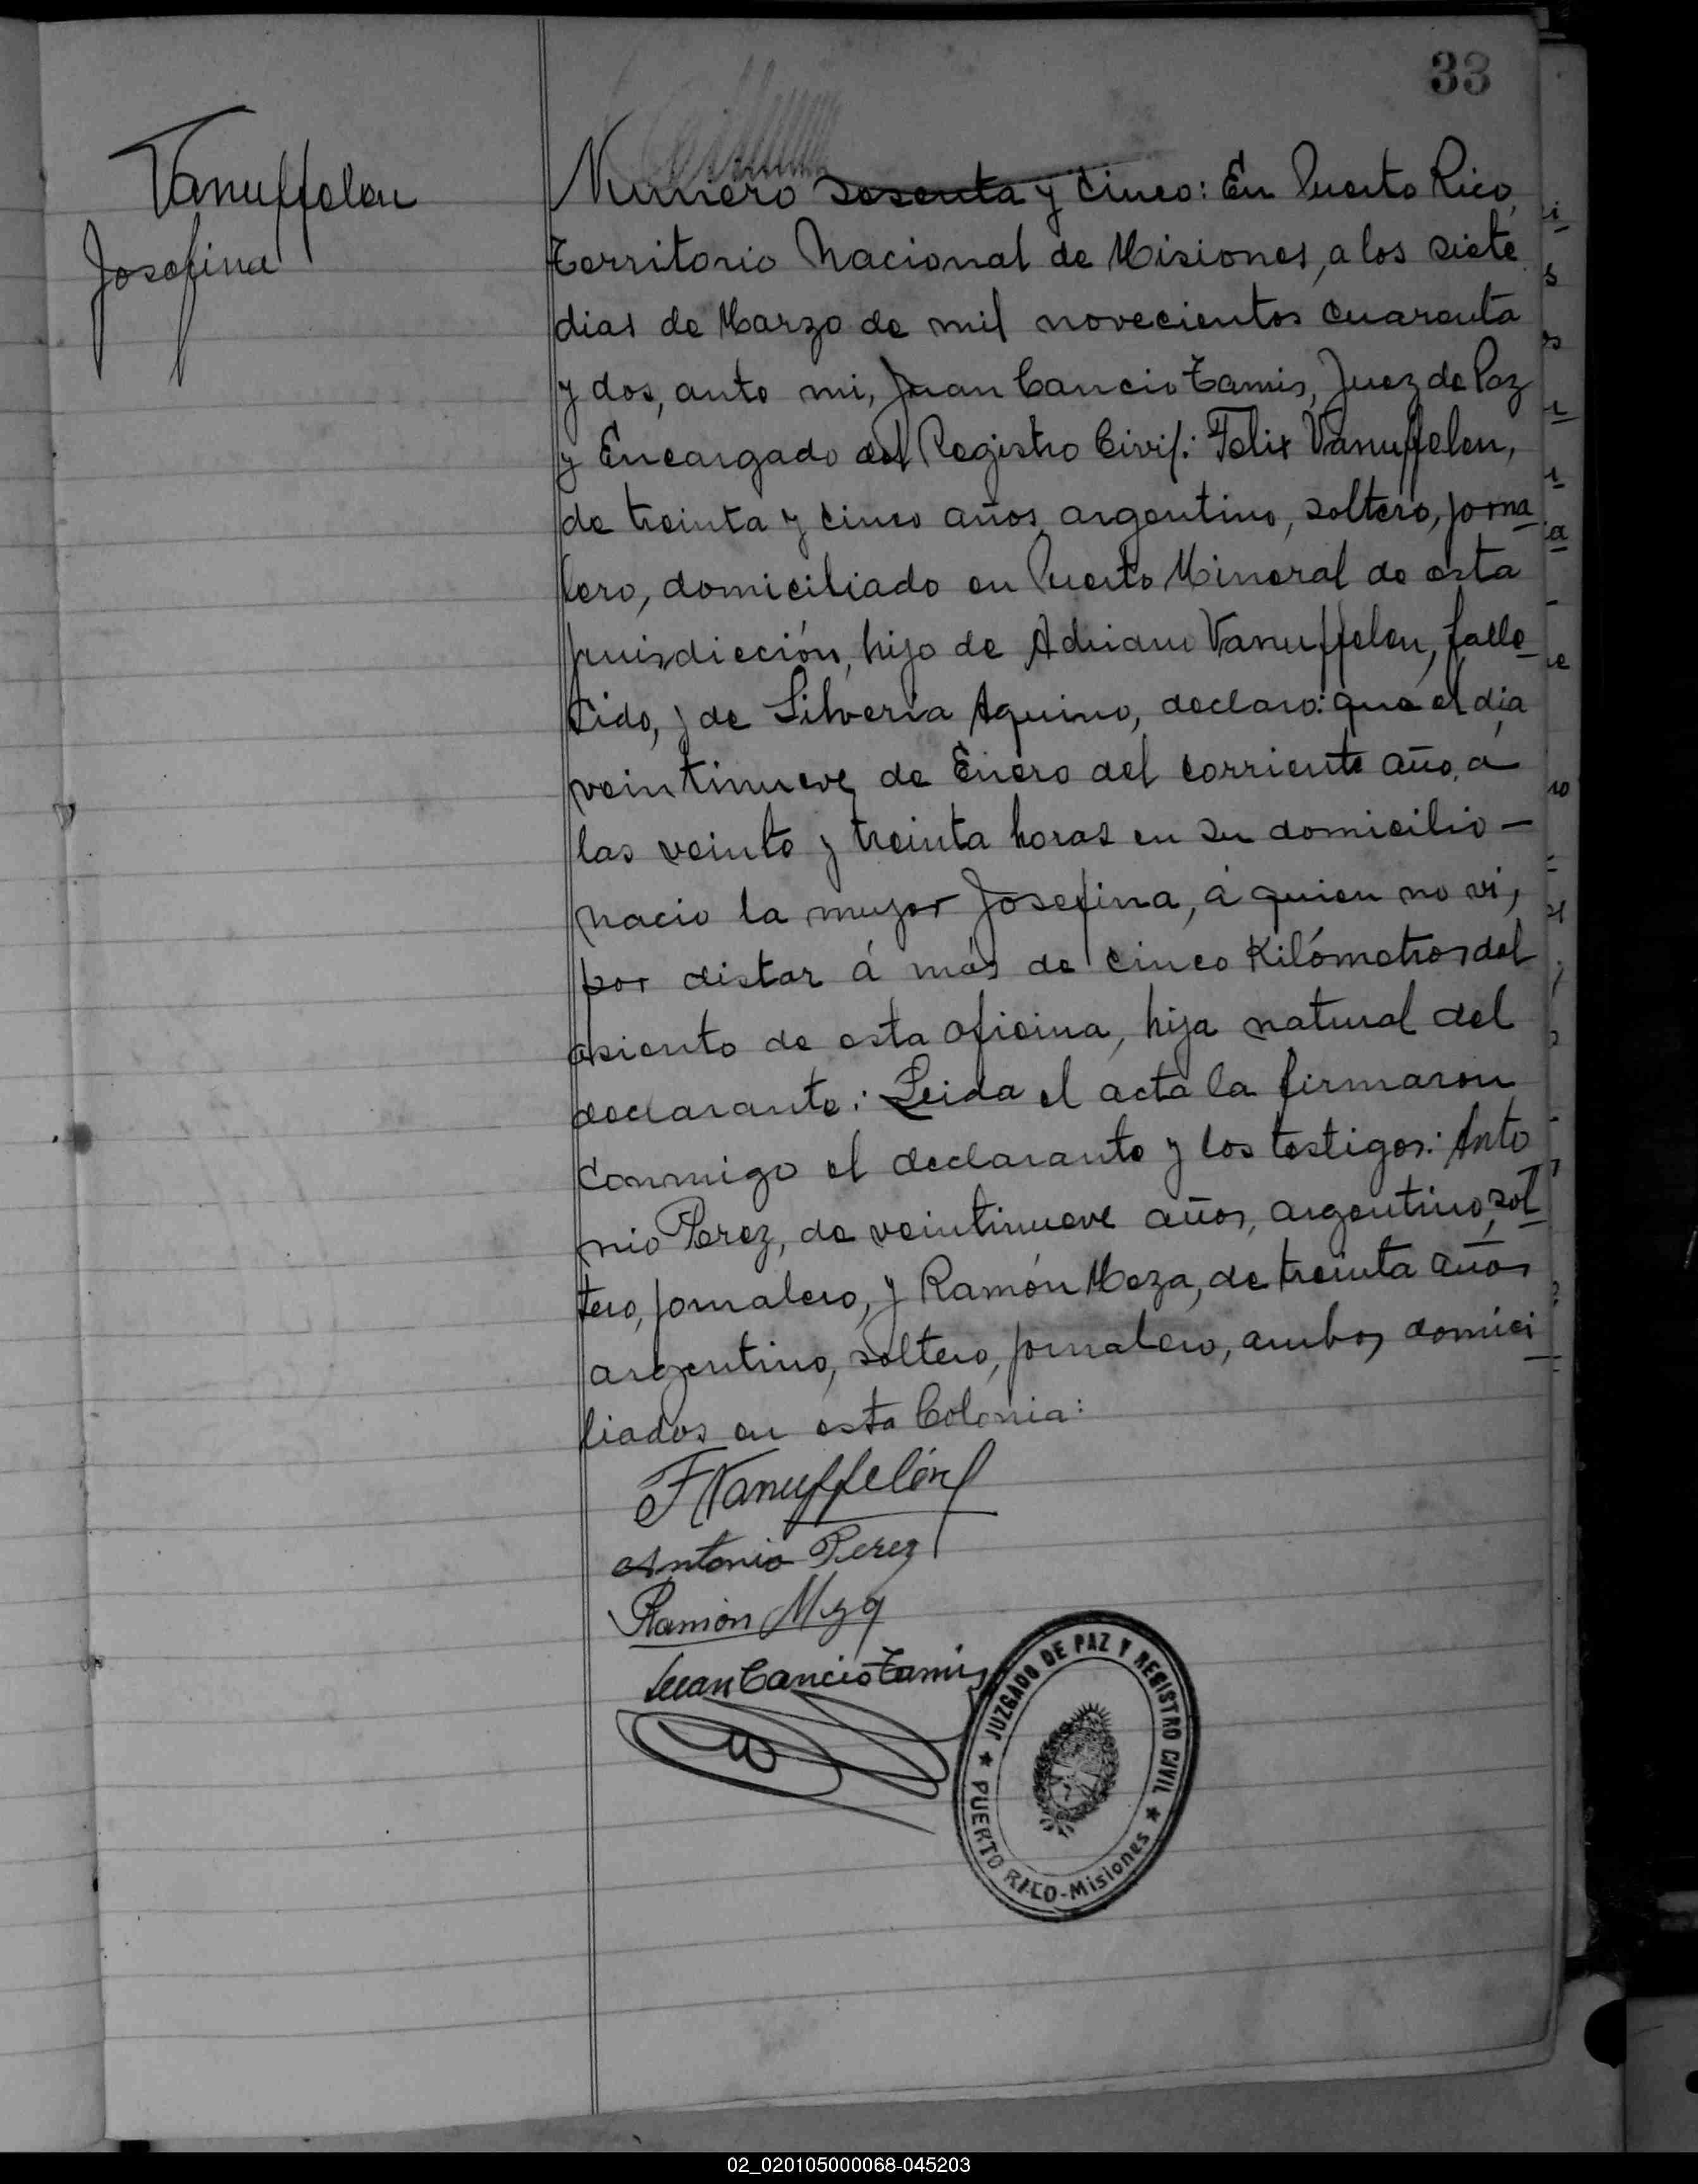 33
Vanuffelen
Josefina
Numero sesenta y cinco: En Puerto Rico,
territorio Nacional de Misiones, a los siete
dias de Marzo de mil novecientos cuarenta
y dos, ante mi, Juan Cancio Tamis, Juez de Paz
y Encargado del Registro Civil: Felix Vanuffelen,
de treinta y cinco años, argentino, soltero, jorna
lero, domiciliado en Puerto Mineral de esta
jurisdicción, hijo de Adriano Vanuffelen, falle
cido, y de Silveria Aquino, declaro: que el dia
veintinueve de Enero del corriente año, a
las veinte y treinta horas en su domicilio —
nacio la mujer Josefina, á quien no vi,
por distar á más de cinco Kilómetros del
asiento de esta oficina, hija natural del
declarante: Leida el acta la firmaron
conmigo el declarante y los testigos: Anto
nio Perez, de veintinueve años, argentino, sol
tero, jornalero, y Ramón Meza, de treinta años
argentino, soltero, jornalero, ambos domici
liados en esta Colonia:
F Vanuffelén
Antonio Perez
Ramón Meza
Juan Cancio Tamis
JUZGADO DE PAZ Y REGISTRO CIVIL
PUERTO RICO-Misiones
02_020105000068-045203